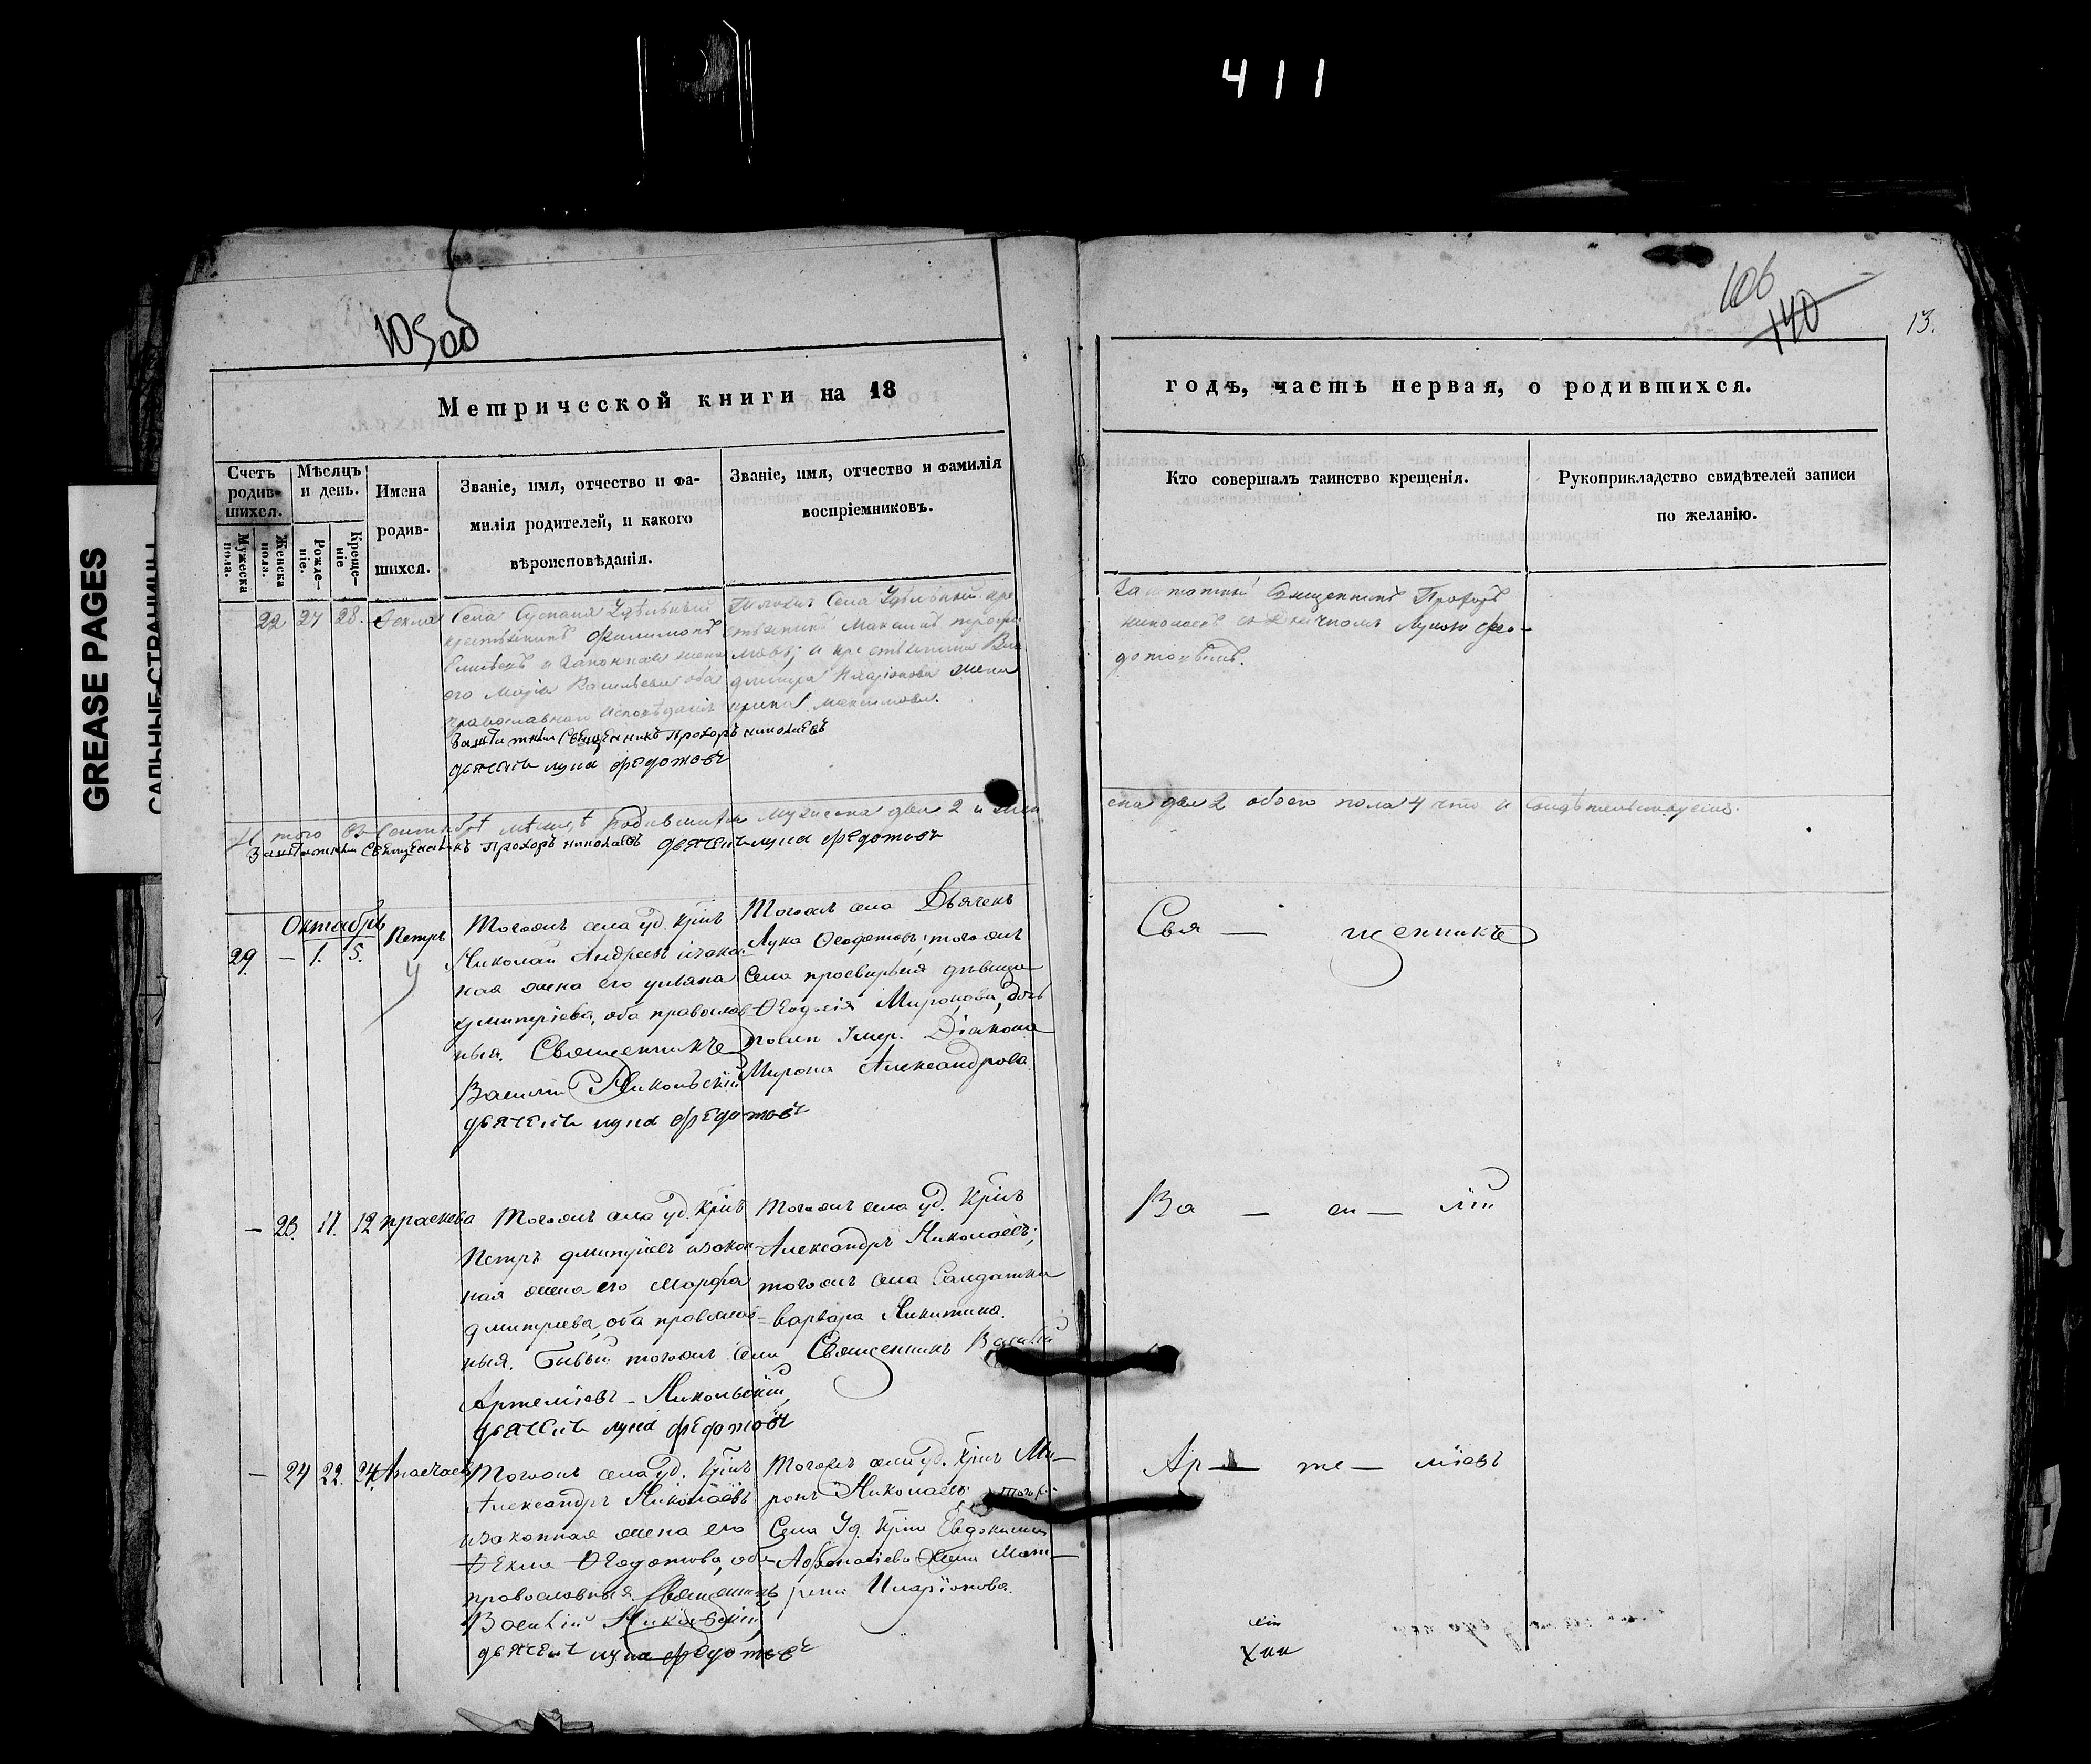 411
GREASE PAGES
САЛЬНЫЕ СТРАНИЦЫ
105об
106
140
13.
Метрической книги на 18
годѣ, часть первая, о родившихся.
Счетъ родив-шихся.
Мужеска пола.
Женска пола.
Мѣсяцъ и день.
Рожде-ніе.
Креще-ніе
Имена родив-шихся.
Званіе, имя, отчество и фа-
милія родителей, и какого
вѣроисповѣданія.
Званіе, имя, отчество и фамилія
воспріемниковъ.
Кто совершалъ таинство крещенія.
Рукоприкладство свидѣтелей записи
по желанію.
22 27 28. Фекла
Села Удѣльный
крестьянинъ Филимонъ
Елисѣевъ и законная жена
его Марія Васильева оба
православнаго исповѣданія
Села Удѣльный кре
стьянинъ Максимъ
и крестьянина
Иларіонова жена
Максимова.
Заштатный Священникъ Прохоръ николаевъ
дьячекъ лука федотовъ
Заштатный Священникъ Прохоръ
николаевъ съ Дьячкомъ Лукою Фео-
дотовымъ.
Итого въ Сентябрѣ мѣсяцѣ родившихся мужеска два 2 и жен
ска два 2 обоего пола 4 что и свидѣтельствуемъ.
Заштатный Священникъ Прохоръ николаевъ дьячекъ лука федотовъ
Октябрь
29. — 1. 5. Петръ
Тогожъ села уд. крнъ
Николай Андреевъ изакон
ная жена его ульяна
дмитріева, оба православ
ныя. Священникъ
Василій Никольскій
дьячекъ лука федотовъ
Тогожъ села Дьячекъ
Лука Ѳеодотовъ; тогожъ
села просвирня дѣвица
Ѳеодосія Миронова, дочь
умер. Діакона
Мирона Александрова.
Свя — щенникъ
— 23. 11. 12 праскева
Тогожъ села уд. крнъ
Петръ дмитріевъ изакон
ная жена его Марфа
дмитріева, оба православ
ныя. Бывый тогожъ села Священникъ Василій
Артеміевъ - Никольскій,
дьячекъ лука федотовъ
Тогожъ села уд. крнъ
Александръ Николаевъ;
тогожъ села Салдатка
варвара Никитина.
Ва — си — лій
— 24 22. 24.
Тогожъ села уд. крнъ
Александръ Николаевъ
изаконная жена его
Ѳекла Ѳеодотова, оба
православныя. Священникъ
Василій Никольскій,
дьячекъ лука федотовъ
Тогожъ села уд. крнъ Ми-
ронъ Николаевъ; того
Села Уд. крна Евдокима
Афонасіева жена Мат-
рена Иларіонова.
Ар — те — міевъ